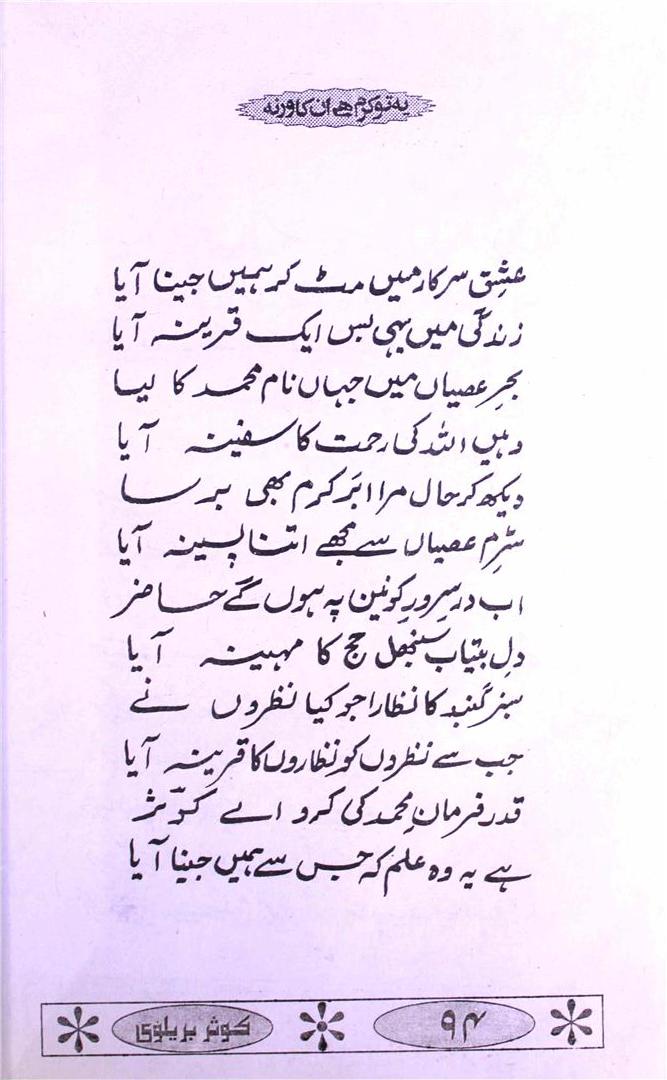 یہ تو کرم ہے ان کا ورنہ
عشقِ سرکار میں مٹ کر ہمیں جینا آیا
زندگی میں یہی بس ایک قرینہ آیا
بحرِ عصیاں میں جہاں نام محمد کا لیا
وہیں اللہ کی رحمت کا سفینہ آیا
دیکھ کر حال مرا ابرِ کرم بھی برسا
شرمِ عصیاں سے مجھے اتنا پسینہ آیا
اب درِ سرورِ کونین پہ ہوں گے حاضر
دلِ بیتاب سنبھل حج کا مہینہ آیا
سبز گنبد کا نظارا جو کیا نظروں نے
جب سے نظروں کو نظاروں کا قرینہ آیا
قدر فرمانِ محمد کی کرو اے کوثرؔ
ہے یہ وہ علم کہ جس سے ہمیں جینا آیا
۹۴
کوثر بریلوی